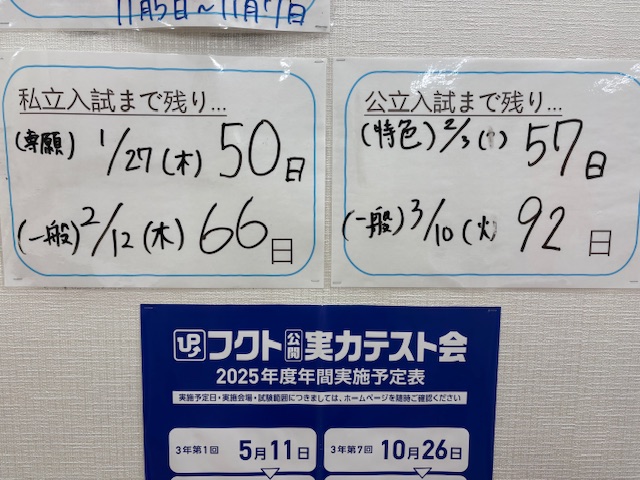 11月5日～11月17日
私立入試まで残り...
(専願) 1/27(木) 50日
(一般) 2/12(木) 66日
公立入試まで残り...
(特色) 2/3( ) 57日
(一般) 3/10(火) 92日
フクト公開実力テスト会
2025年度年間実施予定表
実施予定日・実施会場・試験範囲につきましては、ホームページを随時ご確認ください
3年第1回 5月11日
3年第7回 10月26日